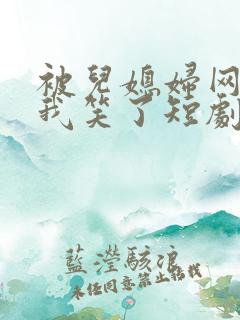 被兒媳婦网
我笑了短劇
藍瀅駭浪
未经同意禁止转载